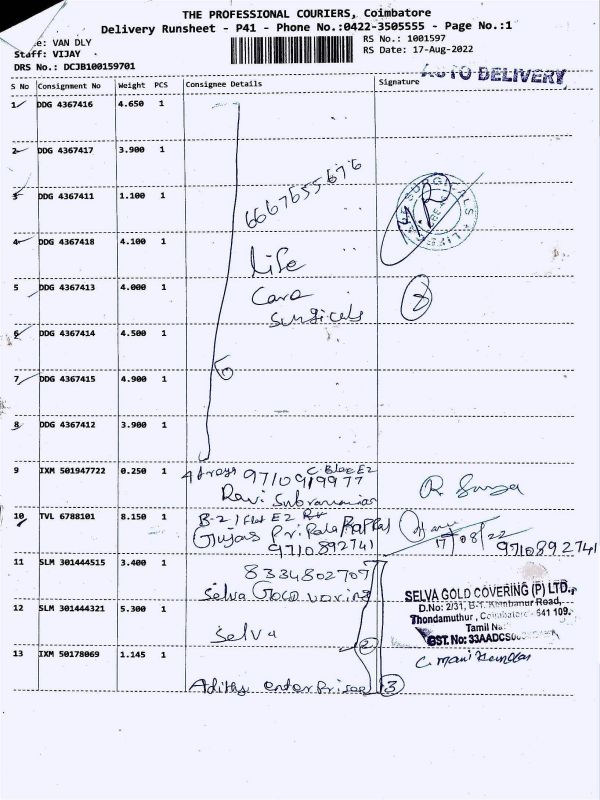 THE PROFESSIONAL COURIERS, Coimbatore
Delivery Runsheet - P41 - Phone No.:0422-3505555 - Page No.:1
e: VAN DLY
RS No.: 1001597
Staff: VIJAY
RS Date: 17-Aug-2022
DRS No.: DCJB100159701
AUTO DELIVERY
S No Consignment No Weight PCS Consignee Details Signature
1 DDG 4367416 4.650 1
2 DDG 4367417 3.900 1
3 DDG 4367411 1.100 1
6667655676
4 DDG 4367418 4.100 1
Life
5 DDG 4367413 4.000 1
Care
Surgicals
8
6 DDG 4367414 4.500 1
7 DDG 4367415 4.900 1
8 DDG 4367412 3.900 1
9 IXM 501947722 0.250 1
9710919977
Ravi Subramanian
10 TVL 6788101 8.150 1
B-2 / Flat E2
9710892741
17/08/22
9710892741
11 SLM 301444515 3.400 1
8334802707
Selva
SELVA GOLD COVERING (P) LTD.,
D.No: 2/31, B.T. Kulambanur Road,
Thondamuthur, Coimbatore - 641 109.
Tamil
GST. No: 33AADCS
12 SLM 301444321 5.300 1
Selva
2
13 IXM 50178069 1.145 1
C. Manikandan
Adithya enterprises
3